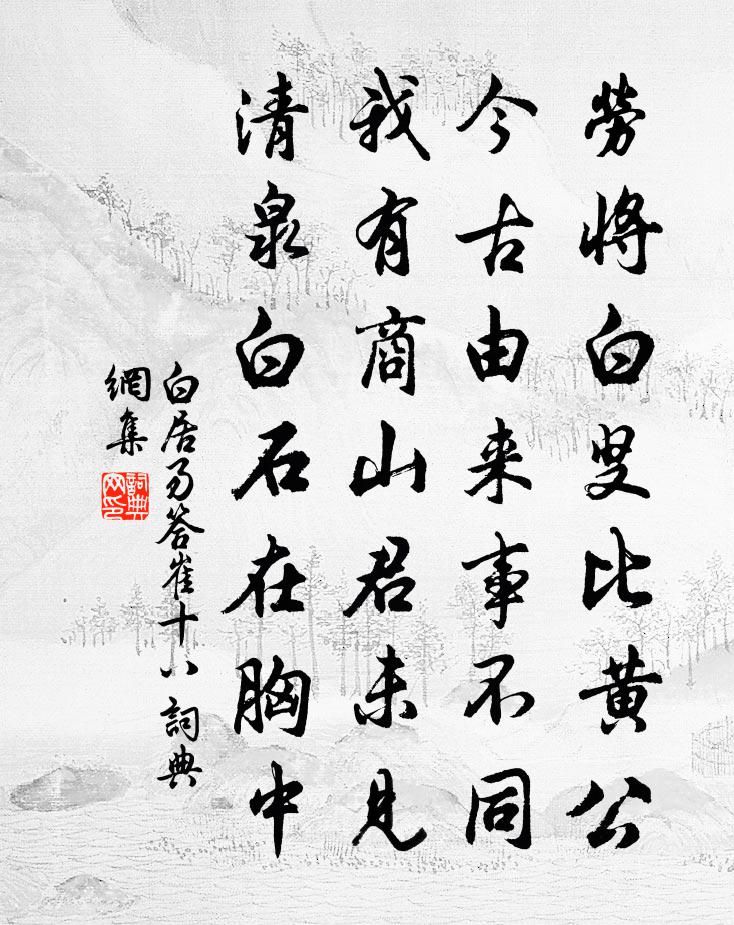 勞將白叟比黃公
今古由来事不同
我有商山君未見
清泉白石在胸中
白居易答崔十八 詞典
網集
詞典
网